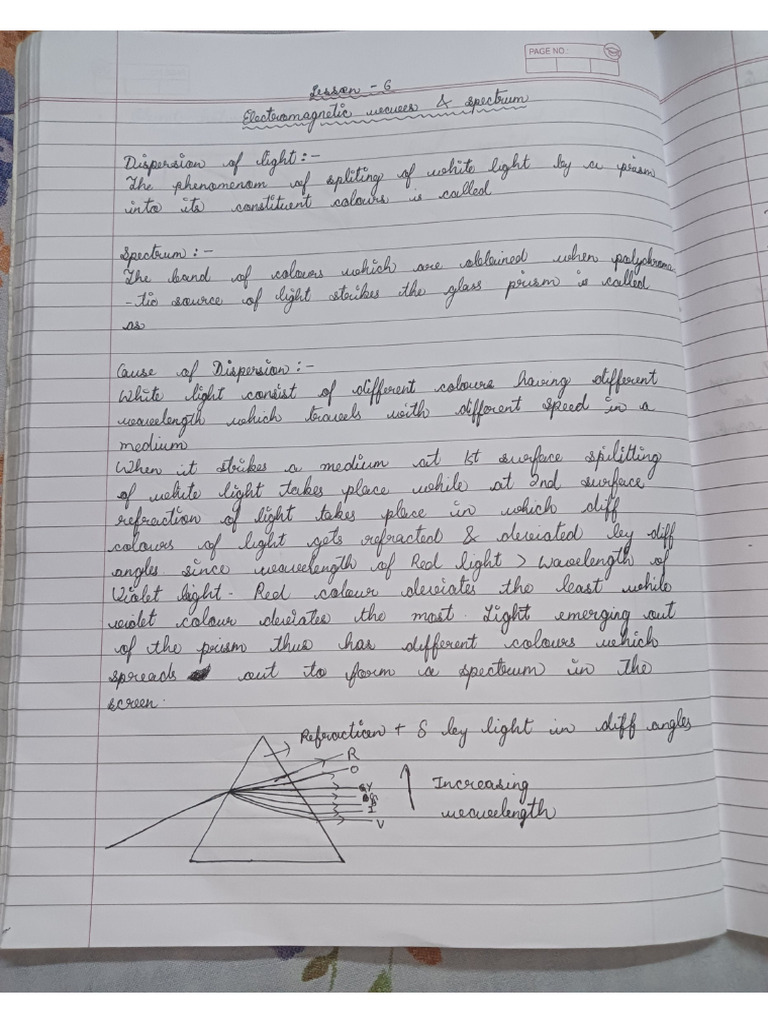 PAGE NO.:
Lesson - 6
Electromagnetic waves & spectrum
Dispersion of light :-
The phenomenom of spliting of white light by a prism
into its constituent colours is called
Spectrum :-
The band of colours which are obtained when polychroma
-tic source of light strikes the glass prism is called
as
Cause of Dispersion :-
White light consist of different colours having different
wavelength which travels with different speed in a
medium
When it strikes a medium at 1st surface splitting
of white light takes place while at 2nd surface
refraction of light takes place in which diff
colours of light gets refracted & deviated by diff
angles since wavelength of Red light > Wavelength of
Violet light. Red colour deviates the least while
violet colour deviates the most. Light emerging out
of the prism thus has different colours which
spreads out to form a spectrum in the
screen.
Refraction + δ by light in diff angles
R
O
Y
G
B
I
V
Increasing
wavelength